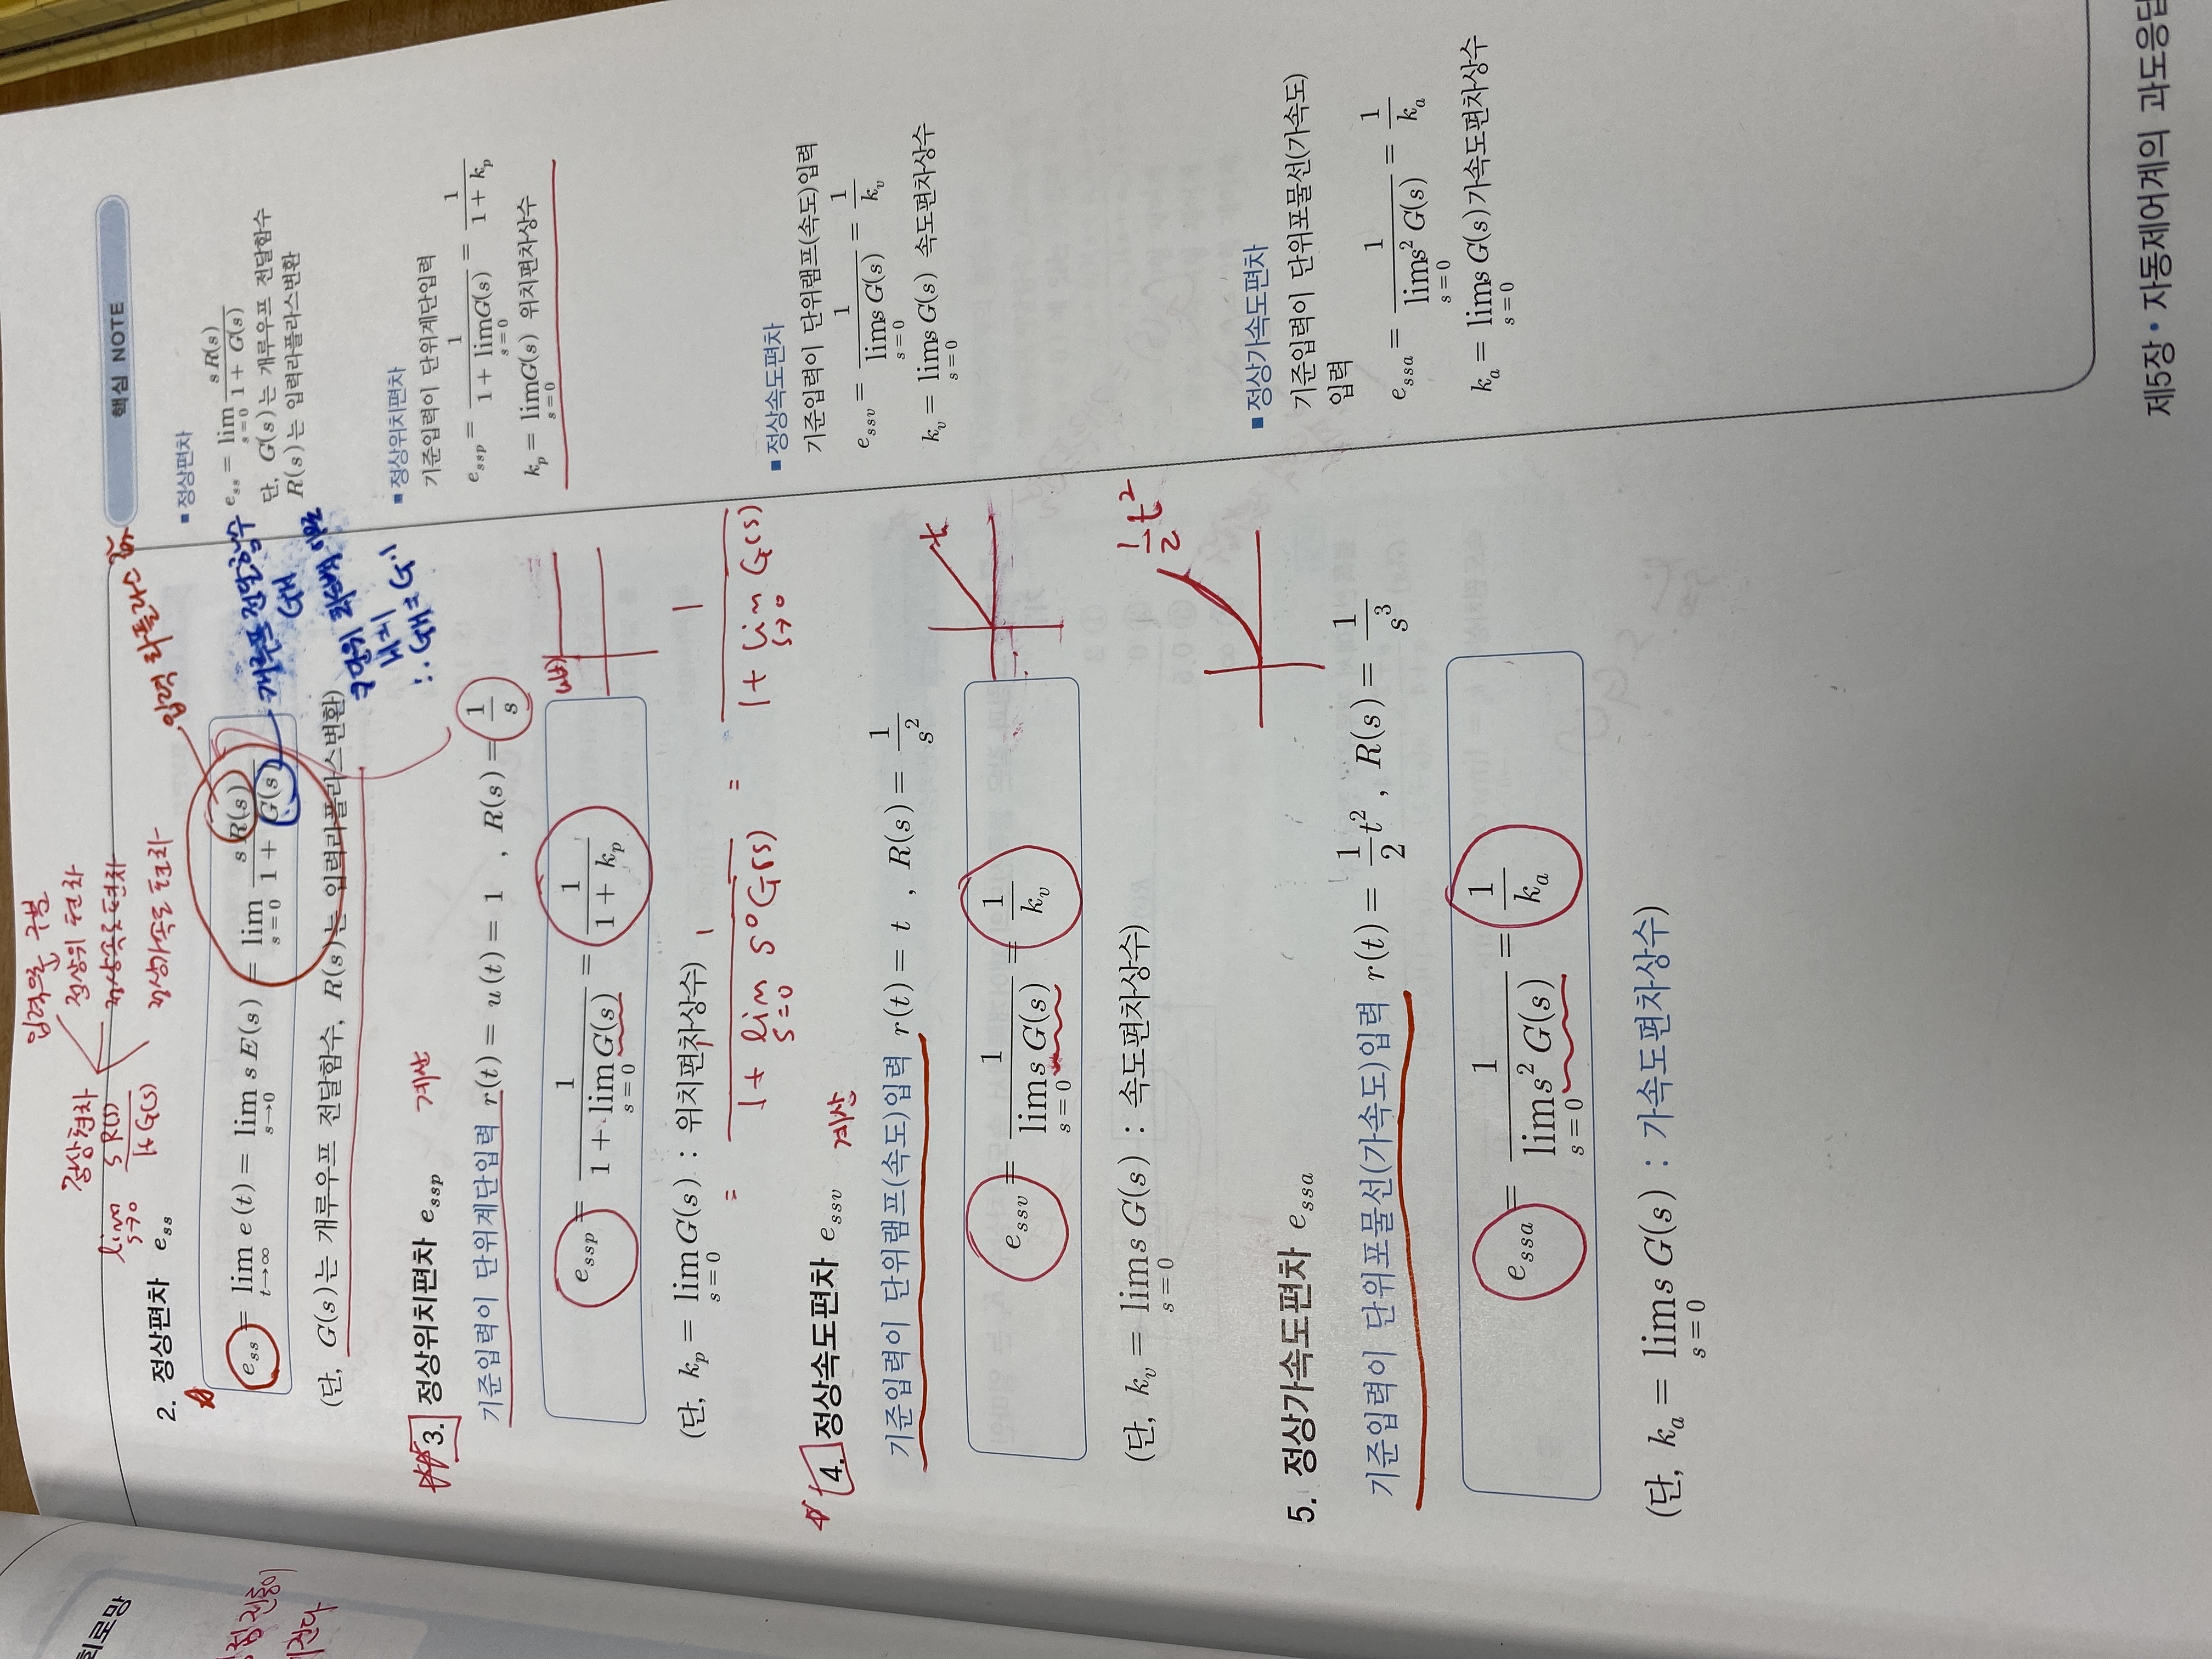 입력으로 구분
정상편차
정상위 편차
정상속도 편차
정상가속도 편차
lim s→0 s R(s) / 1+G(s)
입력 라플라스 값
2. 정상편차 e_ss
e_ss = lim t→∞ e(t) = lim s→0 s E(s) = lim s=0 s R(s) / 1 + G(s)
개루프 전달함수
G개
(단, G(s)는 개루우프 전달함수, R(s)는 입력라플라스변환)
∴ G개 = G·1
3. 정상위치편차 e_ssp 계산
기준입력이 단위계단입력 r(t) = u(t) = 1 , R(s) = 1/s
u(t)
e_ssp = 1 / 1 + lim s=0 G(s) = 1 / 1 + k_p
(단, k_p = lim s=0 G(s) : 위치편차상수)
= 1 / 1 + lim s=0 s⁰G(s) = 1 / 1 + lim s→0 G(s)
4. 정상속도편차 e_ssv 계산
기준입력이 단위램프(속도)입력 r(t) = t , R(s) = 1/s²
t
e_ssv = 1 / lim s=0 s G(s) = 1/k_v
(단, k_v = lim s=0 s G(s) : 속도편차상수)
5. 정상가속도편차 e_ssa
기준입력이 단위포물선(가속도)입력 r(t) = 1/2 t² , R(s) = 1/s³
1/2 t²
e_ssa = 1 / lim s=0 s² G(s) = 1/k_a
(단, k_a = lim s=0 s G(s) : 가속도편차상수)
핵심 NOTE
■ 정상편차
e_ss = lim s=0 s R(s) / 1 + G(s)
단, G(s)는 개루우프 전달함수
R(s)는 입력라플라스변환
■ 정상위치편차
기준입력이 단위계단입력
e_ssp = 1 / 1 + lim s=0 G(s) = 1 / 1 + k_p
k_p = lim s=0 G(s) 위치편차상수
■ 정상속도편차
기준입력이 단위램프(속도)입력
e_ssv = 1 / lim s=0 s G(s) = 1/k_v
k_v = lim s=0 s G(s) 속도편차상수
■ 정상가속도편차
기준입력이 단위포물선(가속도)
입력
e_ssa = 1 / lim s=0 s² G(s) = 1/k_a
k_a = lim s=0 s G(s)가속도편차상수
제5장 • 자동제어계의 과도응답
회로망